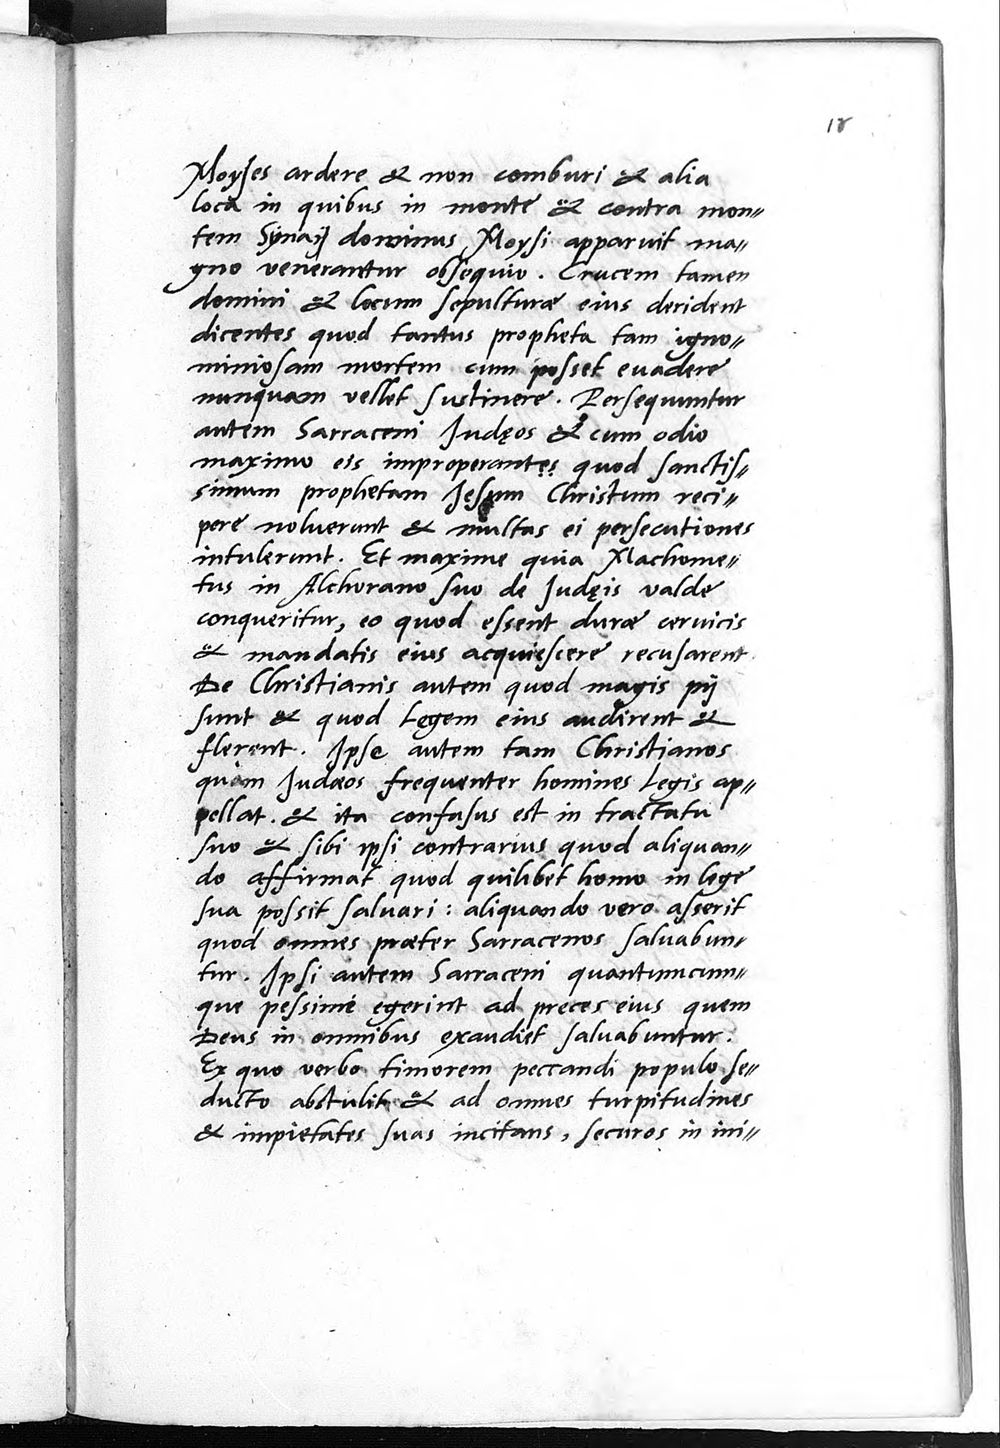 18
Moyses ardere & non comburi & alia
loca in quibus in monte & contra mon=
tem Synaij dominus Moysi apparuit ma=
gno venerantur obsequio. Crucem tamen
domini & locum sepulturæ eius derident
dicentes quod tantus propheta tam igno=
miniosam mortem cum posset euadere
nunquam vellet sustinere. Persequuntur
autem Sarraceni Judęos & cum odio
maximo eis improperantes quod sanctis=
simum prophetam Jesum Christum reci=
pere noluerunt & multas ei persecutiones
intulerunt. Et maxime quia Machome=
tus in Alchorano suo de Judęis valde
conqueritur, eo quod essent duræ ceruicis
& mandatis eius acquiescere recusarent.
De Christianis autem quod magis pij
sunt & quod Legem eius audirent &
flerent. Ipse autem tam Christianos
quàm Judæos frequenter homines Legis ap=
pellat. & ita confusus est in tractatu
suo & sibi ipsi contrarius quod aliquan=
do affirmat quod quilibet homo in lege
sua possit saluari: aliquando vero asserit
quod omnes præter Sarracenos saluabun=
tur. Ipsi autem Sarraceni quantumcum=
que pessime egerint ad preces eius quem
Deus in omnibus exaudiet saluabuntur.
Ex quo verbo timorem peccandi populo se=
ducto abstulit & ad omnes turpitudines
& impietates suas incitans, securos in ini=